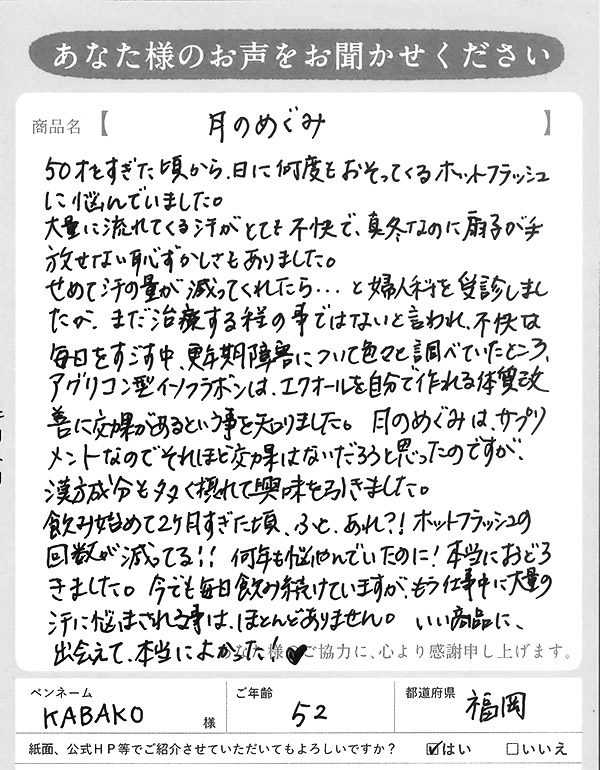 あなた様のお声をお聞かせください
商品名【 月のめぐみ 】
50才をすぎた頃から、日に何度もおそってくるホットフラッシュ
に悩んでいました。
大量に流れてくる汗がとても不快で、真冬なのに扇子が手
放せない恥ずかしさもありました。
せめて汗の量が減ってくれたら…と婦人科を受診しまし
たが、まだ治療する程の事ではないと言われ、不快な
毎日をすごす中、更年期障害について色々と調べていたところ、
アグリコン型イソフラボンは、エクオールを自分で作れる体質改
善に効果があるという事を知りました。月のめぐみは、サプリ
メントなのでそれほど効果はないだろうと思ったのですが、
漢方成分も多く摂れて興味を引きました。
飲み始めて2ヶ月すぎた頃、ふと、あれ?!ホットフラッシュの
回数が減ってる!!何年も悩んでいたのに!本当におどろ
きました。今でも毎日飲み続けていますが、もう仕事中に大量の
汗に悩まされる事は、ほとんどありません。いい商品に、
出会えて、本当によかった!♥
な様のご協力に、心より感謝申し上げます。
ペンネーム ご年齢 都道府県
KABAKO 様 52 福岡
紙面、公式HP等でご紹介させていただいてもよろしいですか? ☑はい □いいえ